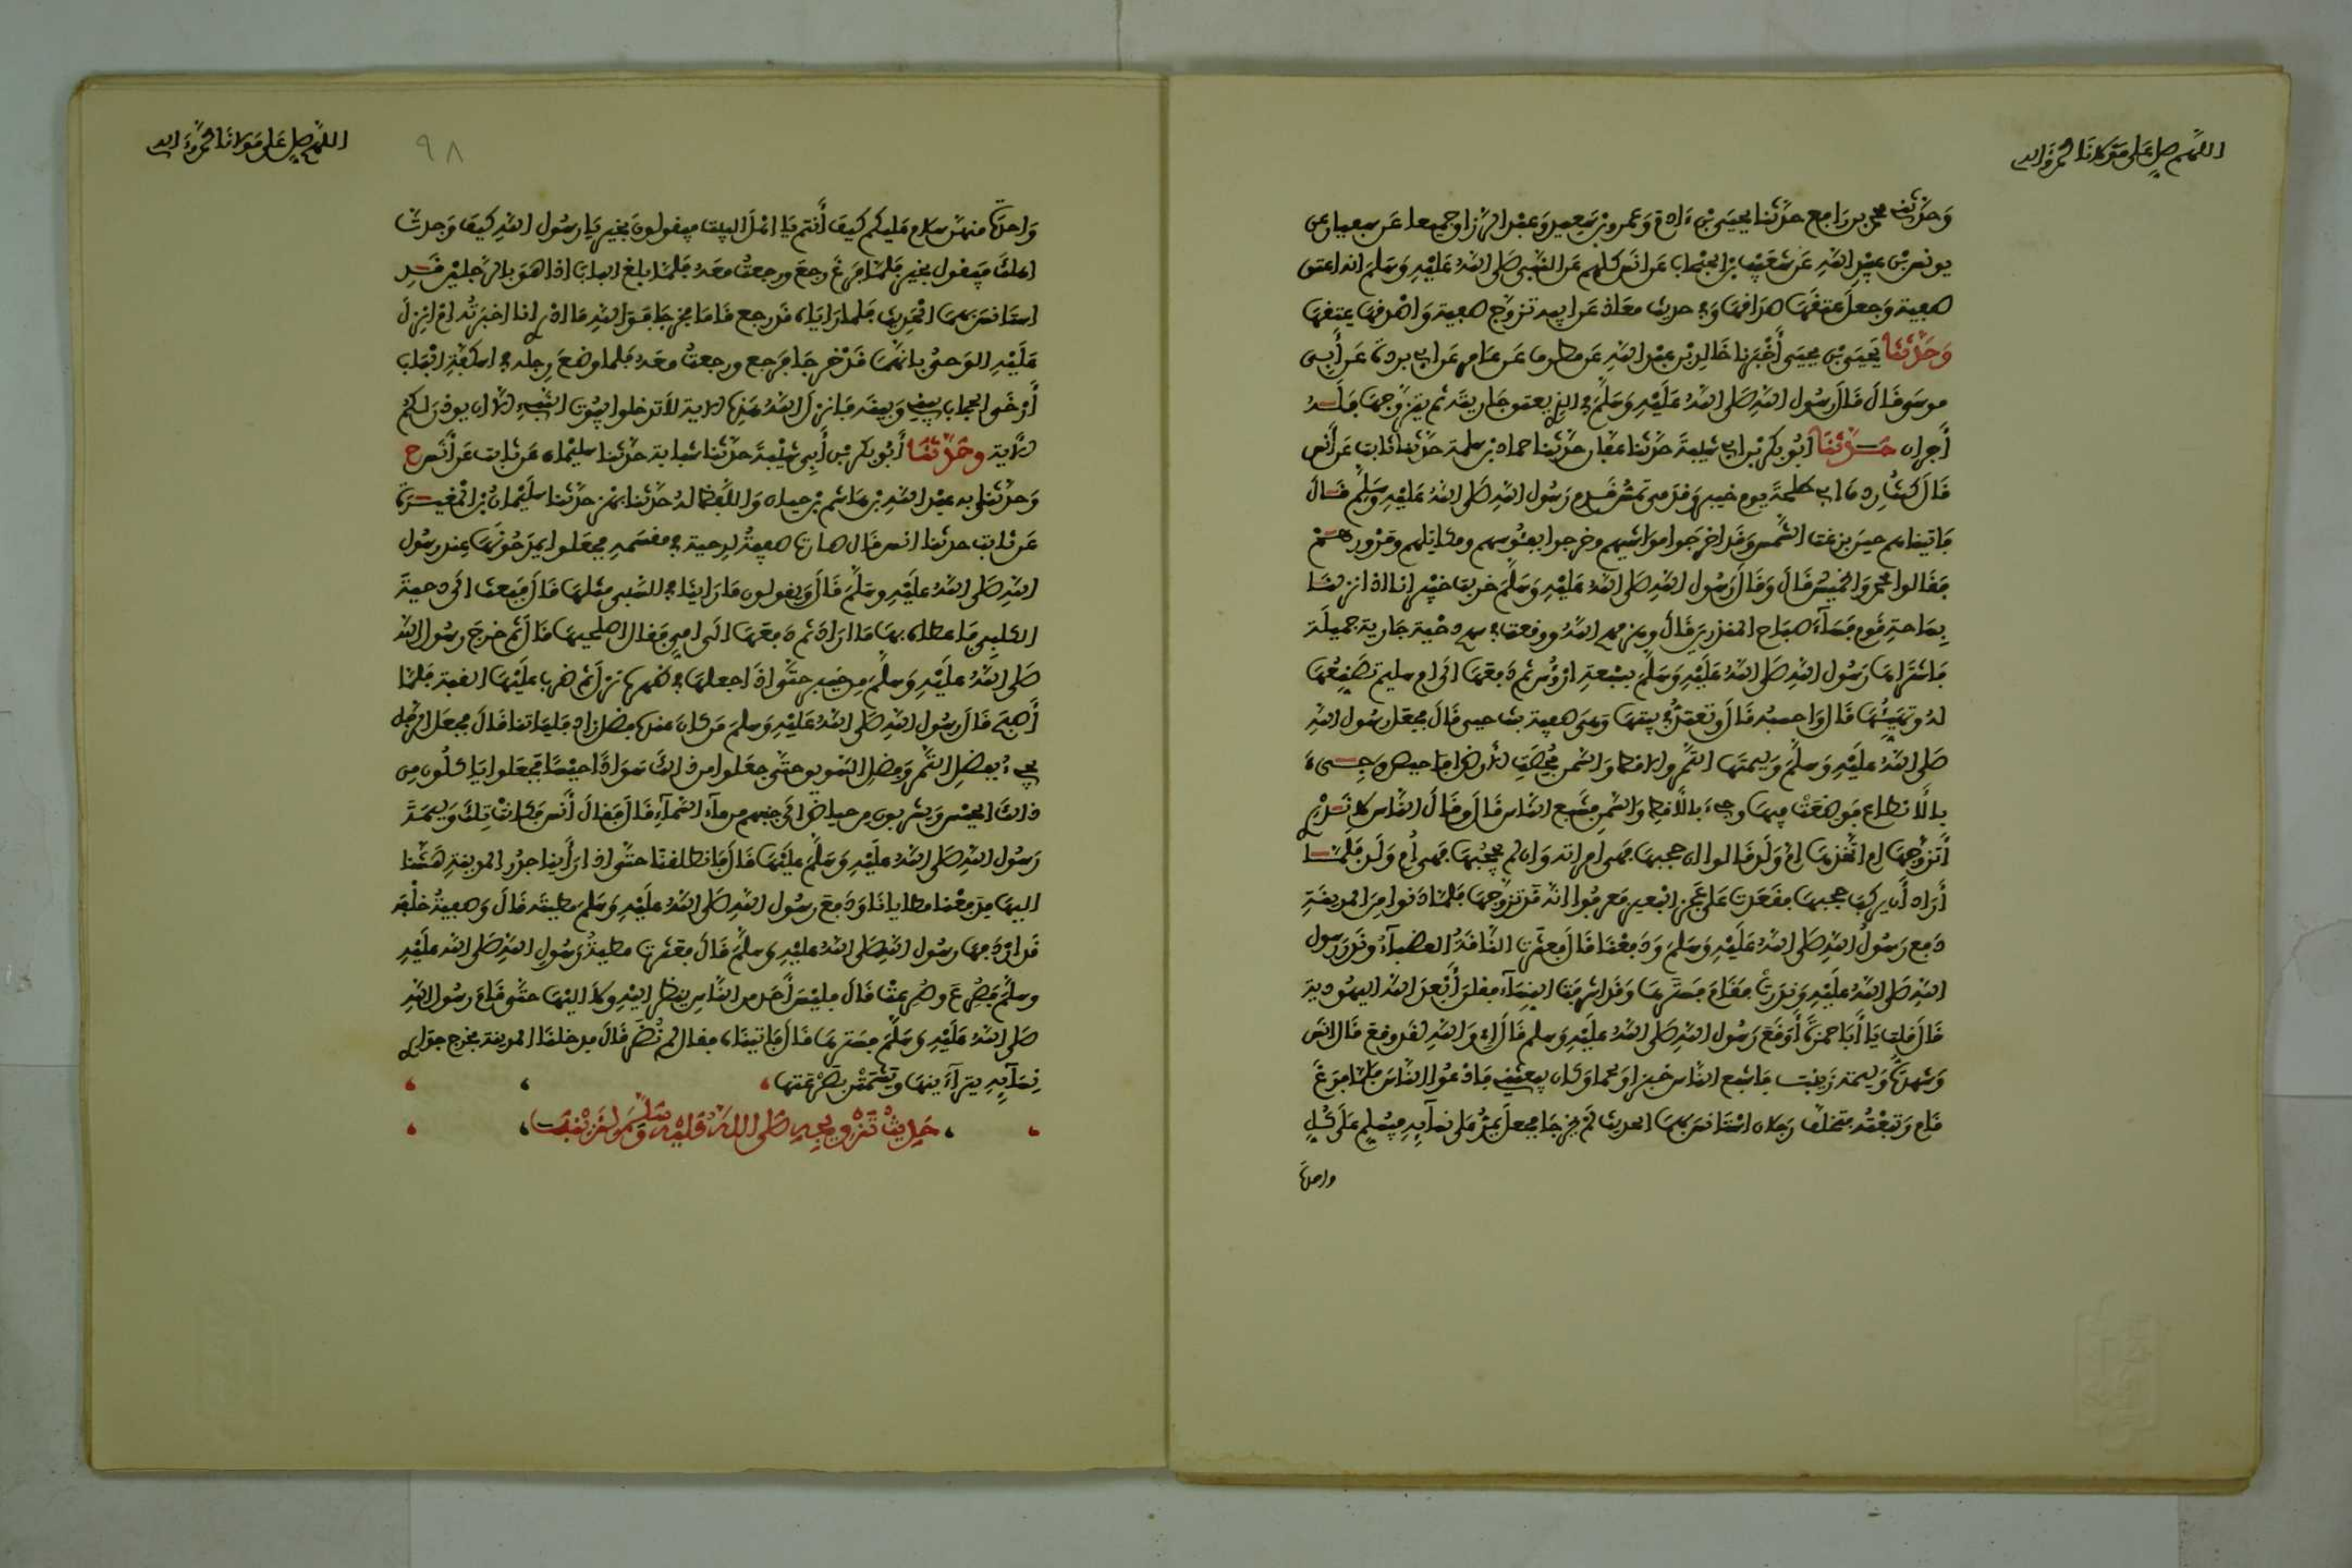 اللهم صل على مولانا محمد وآله
وَحَدَّثَنِي محمد بن رَافِع حدَّثنا يحيَى بْن ءَادَمَ وَعمرو بْن سَعِيد وَعبْد الرَّزاق جميعا عَن سفيان عن
يونس بْن عبيْد الله عَن شعَيْب بْن الحبْحاب عَن أنَس كلهم عَن النَّبي صَلى اللهُ عَلَيْهِ وَسَلم انه اعتق
صفية وَجعل عتقَهَا صدَاقهَا وَفي حديث معَاذ عَن ابيه تزوَّج صفية وَاصْدقهَا عتقهَا
وَحَدَّثَنَا يَحيَى بْن يحيَى أخْبَرنا خَالِد بْن عبْد الله عَن مطرف عَن عَامر عَن ابي بردة عَن أَبي
موسَى قَالَ قَالَ رَسُول اللهِ صَلى اللهُ عَلَيْهِ وَسَلَّمَ في الذي يعتق جَاريتَه ثم يتزَوَّجهَا فلَهُ
أجران حَدَّثَنَا أبُو بَكر بْن ابي شيْبةَ حدَّثنا عفَّان حدَّثنا حماد بْن سلمة حدَّثنا ثابت عَن أنَس
قَالَ كنتُ رِدفَ ابي طلحَةَ يوم خيبر وَقدَمي تمسُّ قدم رَسُول اللهِ صَلى اللهُ عَلَيْهِ وَسَلَّم قَالَ
فَاتيناهم حينَ بزغت الشَّمس وَقَد اخرَجُوا مواشيهم وخرجوا بفئُوسهم ومكاتلهم ومُرُورهمْ
فقَالوا محمد وَالخميس قَالَ وَقَالَ رَسُول اللهِ صَلى اللهُ عَلَيْهِ وَسَلَّمَ خربت خيْبر انا اذا نزلنَا
بِسَاحة قَوم فَسَاءَ صبَاح المنذرين قَالَ وهزمهم اللهُ ووقعت في سهم دحْية جَارية جميلَة
فاشتَرَاهَا رَسُول اللهِ صَلى اللهُ عَلَيْهِ وَسَلَّم بسَبْعة ارْؤُس ثم دَفعَهَا الَى ام سليم تصَنِّعُهَا
لهُ وتهَيِّئُهَا قَالَ وَاحسبُه قَالَ وتعْتَدُّ في بيتهَا وَهيَ صفية بنت حيي قَالَ فجعَلَ رسُول اللهِ
صَلى اللهُ عَلَيْهِ وَسَلَّمَ وَليمتهَا التَّمر وَالاقط وَالسَّمن فُحِصَتِ الأرض افاحيص وَجِيءَ
بالأنطاع فوضعَتْ فيهَا وجيءَ بالأقط وَالسَّمن فشَبع النَّاس قَالَ وقَالَ النَّاس لا نَدْري
أتزوَّجهَا ام اتَّخَذهَا امَّ وَلَد قَالوا ان حجبهَا فهي امراته وَان لم يحْجُبْهَا فهي أم وَلَد فلَمَّا
أرَاد أن يركبَ حجبهَا فقَعَدَت عَلى عَجُز البعير فَعرفُوا انه قَد تزوَّجهَا فلَمَّا دَنوا من المدينة
دَفع رَسُولُ اللهِ صَلى اللهُ عَلَيْهِ وَسَلَّمَ وَدَفعْنَا قَالَ فعثَرت النَّاقةُ العضبآءُ وندَر رَسول
اللهِ صَلى اللهُ عَلَيْهِ وَندَرتْ فقَامَ فسَتَرهَا وَقد اشرفت النِّسَآء فقلن أبْعدَ الله اليهُودية
قَالَ قلت يَا أبَا حمزَةَ أوَقَعَ رَسُول اللهِ صَلى اللهُ عَلَيْهِ وسلم قَالَ اي وَاللهِ لقد وقع قَالَ انَس
وَشهدتُ وَليمة زَيْنَب فاشبع النَّاس خبزا وَلحما وَكان يبعَثني فادْعُوا النَّاسَ فلمَّا فرَغَ
قَام وَتبعْتُه فتخَلَّف رَجلان اسْتَانسَ بهمَا الحديث لم يخرجَا فجعلَ يمُرُّ عَلى نسَآيِه فيُسَلم عَلَى كُلِّ
واحدة
اللهم صل على مولانا محمد وآله
٩٨
وَاحدَة منهنَّ سَلام عليكم كيفَ أنتم يَا اهْل البيْت فيقولونَ بخير يَا رسُول الله كيفَ وَجدتَّ
اهلكَ فيَقول بخير فلمَّا فرَغَ رجعَ ورجعتُ معَهُ فلمَّا بلَغ البابَ اذا هوَ بالرَّجليْن قَدِ
استَانسَ بهمَا الحَديث فلما رَايَاهُ قَد رجع قَامَا فخرجَا فوَ اللهِ مَا ادْري انا اخبَرْتُه ام انزِلَ
عَلَيْهِ الوَحيُ بانهُمَا قَد خرجَا فرَجع ورجعتُ معَه فلما وضعَ رجله في اسكُفَّة البَاب
أرْخَى الحجاب بيني وَبينه فانزلَ اللهُ هَذه الاية لا تدخلوا بيُوت النَّبيء الا ان يوذن لكم
الآية وَحَدَّثَنَا أبُو بكر بْن أبي شَيْبةَ حدَّثنا شبابة حدَّثنا سليمَان عَن ثابت عَن أنَس ح
وَحدَّثني به عبْد الله بْن هَاشم بْن حيان وَاللَّفظ لهُ حدَّثنا بهز حدَّثنا سليْمانُ بْن المُغيرة
عَن ثابت حدثنا انس قَال صارت صفيةُ لدحية في مقسَمِه فجعَلوا يمدَحُونَهَا عِند رسُول
اللهِ صَلى اللهُ عَلَيْهِ وسَلَّمَ قَالَ وَيقولون مَا رَاينَا في السَّبي مثلهَا قَالَ فبَعث الَى دحيَةَ
الكلبِي فاعطاه بهَا مَا ارَادَ ثم دَفعَهَا الَى امي فقال اصلحيهَا قَالَ ثم خرجَ رسُول الله
صَلى اللهُ عَلَيْهِ وَسلَّمَ من خيبر حتَّى اذَا جعلهَا في ظهره نزلَ ثم ضربَ عَلَيْهَا القبة فلمَّا
أصبَحَ قَالَ رسُول اللهِ صَلى اللهُ عَلَيْهِ وَسلمَ مَن كانَ عنده فضل زاد فليَاتنا به قَالَ فجعَل الرَّجل
يجيءُ بفضلِ التَّمر وَفضلِ السَّويق حتَّى جعَلوا من ذلكَ سَوَادًا حيْسًا فجعَلوا يَاكلُون من
ذلكَ الحيْس وَيشربون من حياض الَى جنبهم من مآء السَّمآء قَالَ فقالَ أنَس فكانتْ تلكَ وَليمَةَ
رَسُول اللهِ صَلى اللهُ عَلَيْهِ وَسَلَّمَ عَلَيْهَا قَالَ فانطلقنَا حتَّى اذا رَأينا جدُر المدينةِ هَشْنَا
اليهَا فرفعْنا مطايانَا وَدَفعَ رسُول اللهِ صَلى اللهُ عَلَيْهِ وَسَلمَ مطيته قَالَ وَصفيةُ خلْفه
قَد اردَفهَا رسُول اللهِ صَلى اللهُ عليْهِ وَسلمَ قَالَ فعثَرت مطيةُ رسُولِ اللهِ صَلى الله عَلَيْهِ
وسلَّمَ فصُرعَ وصُرِعتْ قَالَ فليْسَ أحَد من النَّاس ينظُر اليْهِ وَلاَ اليْهَا حتَّى قَامَ رسُول اللهِ
صَلى اللهُ عَلَيْهِ وَسَلَّمَ فسَترهَا قَالَ فاتينَاه فقال لم نُضَرَّ قَالَ فدخلنَا المدينة فخرج جوَاري
نِسَآيِه يترَآءَيْنهَا وَيَشمَتْنَ بصَرْعَتِهَا
حَدِيثُ تَزْوِيجِهِ صَلى اللهُ عَلَيْهِ وَسَلَّمَ لزَيْنَبَ